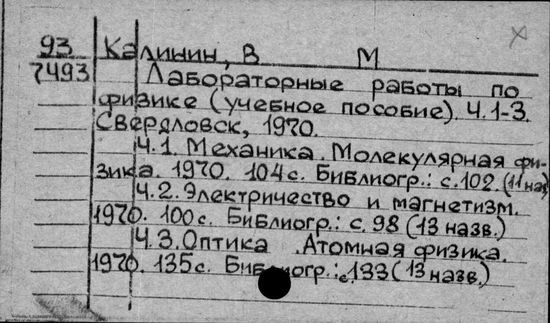 93 Калинин, В М
7493 Лабораторные работы по
физике (учебное пособие). Ч.1-3.
Свердловск, 1970.
Ч.1. Механика. Молекулярная фи-
зика. 1970. 104 с. Библиогр.: с.102 (11 наз
Ч.2. Электричество и магнетизм.
1970. 100 с. Библиогр.: с. 98 (13 назв.)
Ч.3. Оптика. Атомная физика.
1970. 135 с. Библиогр.: с.133 (13 назв.)